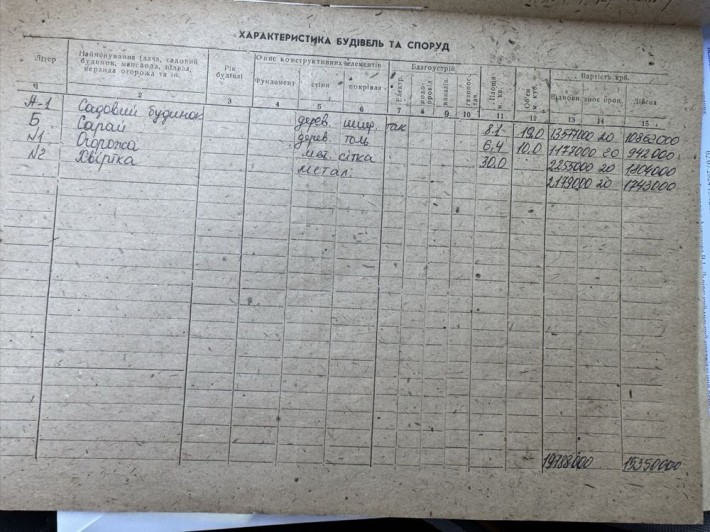 ХАРАКТЕРИСТИКА БУДІВЕЛЬ ТА СПОРУД
Літер
Найменування (дача, садовий будинок, мансарда, підвал, веранда огорожа та ін.
Рік будівлі
Опис конструктивних елементів
Фундамент
стіни
покрівля
Благоустрій
Електр.
водопровід
каналіз.
Площа м. кв.
Об'єм м. куб.
Вартість крб.
Віднови.
знос проц.
Дійсна
1 2 3 4 5 6 7 8 9 10 11 12 13 14 15
А-1 Садовий будинок дерев. шиф. так 8.1 19.0 13577000 20 10862000
Б Сарай дерев. толь 6,4 10.0 1177000 20 942000
N1 Огорожа мет. сітка 30.0 2255000 20 1804000
N2 Хвіртка метал. 2179000 20 1743000
19788000 15350000